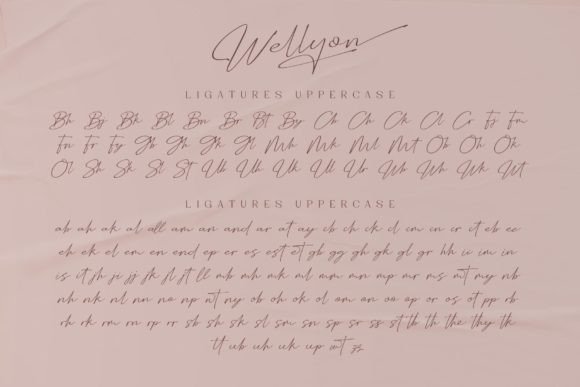 Wellyon
LIGATURES UPPERCASE
Bh Bj Bk Bl Bn Br Bt By Ch Ck Cl Cr Fj Fm
Fn Fr Fy Gb Gh Gk Gl Mh Mk Ml Mt Ob Oh Ok
Ol Sh Sk Sl St Ub Uh Uk Ul Ur Wh Wk Wt
LIGATURES UPPERCASE
ab ah ak al all am an and ar at ay cb ch ck cl cm cn cr ct eb ee
eh ek el em en end ep er es est et gb gg gh gk gl gr hh ii im in
is it jh ji jj jk jl jt ll mb mh mk ml mm mn mp mr ms mt my nb
nh nk nl nn no np nt ny ob oh ok ol om on oo op or os ot pp rb
rh rk rm rn rp rr sb sh sk sl sm sn sp sr ss st tb th the thy tk
tt ub uh uk up wt zs